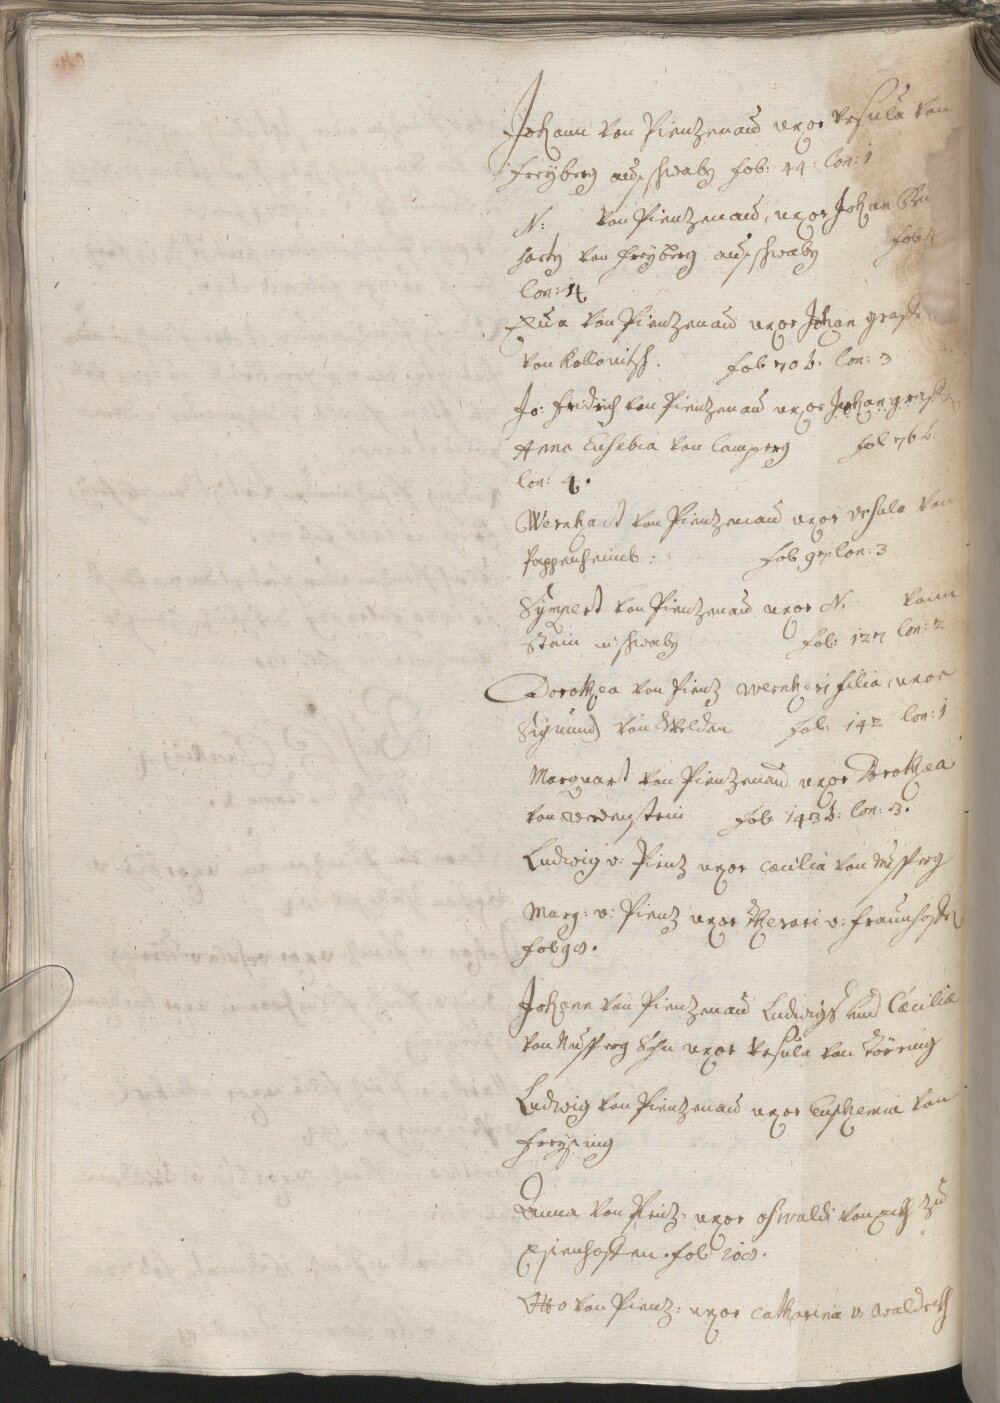 Johann von Pientzenau uxor Ursula von
Freyberg auß schwabn fol: 44: lon: 1
N: von Pientzenau, uxor Johan
von Freyberg auß schwabn fol 4
lon: 14
Eva von Pientzenau uxor Johan
von Kollonitsch. fol 70 b: lon: 3
Jo: Fridrich von Pientzenau uxor Johan
Anna Eusebia von Lamperg fol 76 b.
lon: 4.
Wernhart von Pientzenau uxor Ursula von
Pappenheimb: fol lon: 3
Sympert von Pientzenau uxor N. vom
Stain in schwabn fol: 127 lon: 2
Dorothea von Pientz Wernheri filia, uxor
Sigmund von Welden fol: 142 lon: 1
Marquart von Pientzenau uxor Dorothea
von fol. 143 b: lon: 3.
Ludwig v: Pientz uxor Caecilia von Nusperg
Marg: v: Pientz uxor v: Fraunhofen
fol 98.
Johann von Pientzenau Ludwigs und Caeciliae
von Nusperg Sohn uxor Ursula von Törring
Ludwig von Pientzenau uxor Euphemia von
Freysing
Anna von Pientz: uxor Oswaldi von zu
fol: 208.
Otto von Pientz: uxor Catharina v: Waldeckh